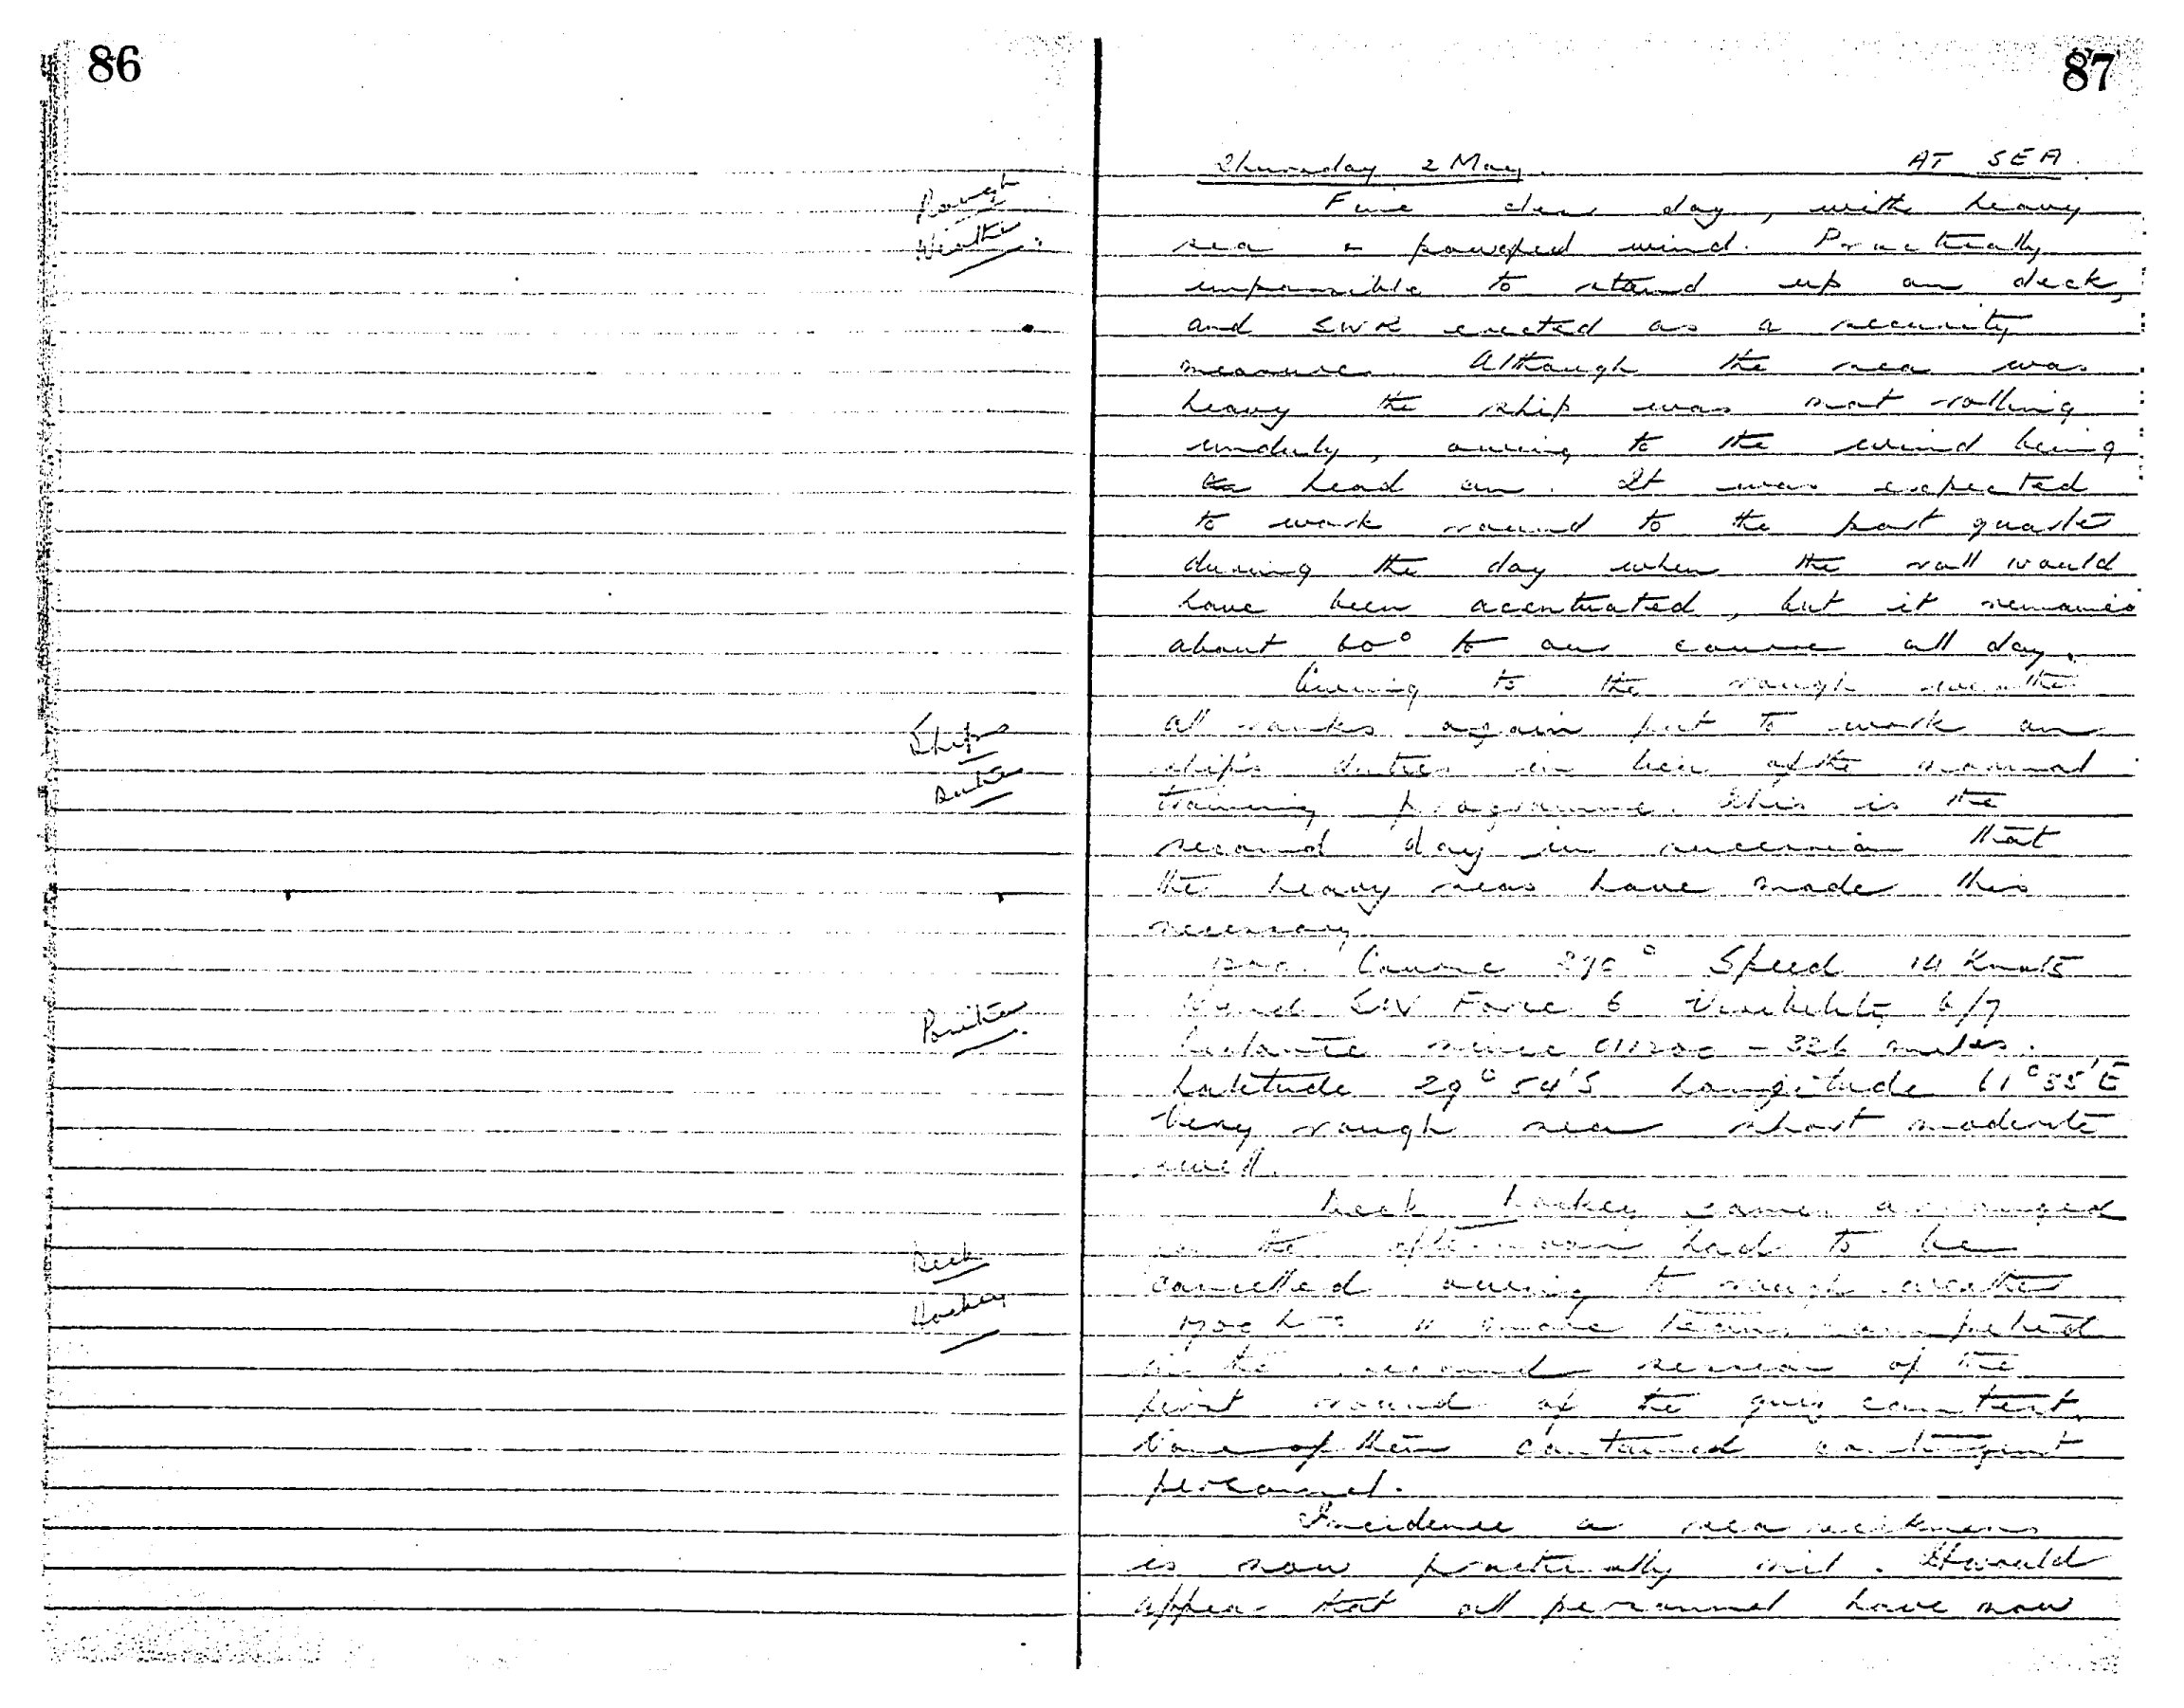 86
Rough
Weather.
Ships
Duties
Position
Deck
Hockey
87
Thursday 2 May. AT SEA.
Fine clear day, with heavy
sea & powerful wind. Practically
impossible to stand up on deck,
and SWR erected as a security
measure. Although the sea was
heavy the ship was not rolling
unduly, owing to the wind being
head on. It was expected
to work round to the port quarter
during the day when the roll would
have been acentuated, but it remained
about 60° to our course all day.
Owing to the rough weather
all ranks again put to work on
ship's duties in lieu of the normal
training programme. This is the
second day in succession that
the heavy seas have made this
necessary
Course 290° Speed 14 Knots
Wind SW Force 6 Visibility 6/7
Distance since 011200 - 326 miles.
Latitude 29° 54'S Longitude 61° 55'E
Very rough sea short moderate
swell.
Deck hockey games arranged
in the afternoon had to be
cancelled owing to rough weather
more teams competed
in the second session of the
first round of the quiz contest.
None of them contained contingent
personnel.
Incidence a sea sickness
is now practically nil. It would
appear that all personnel have now